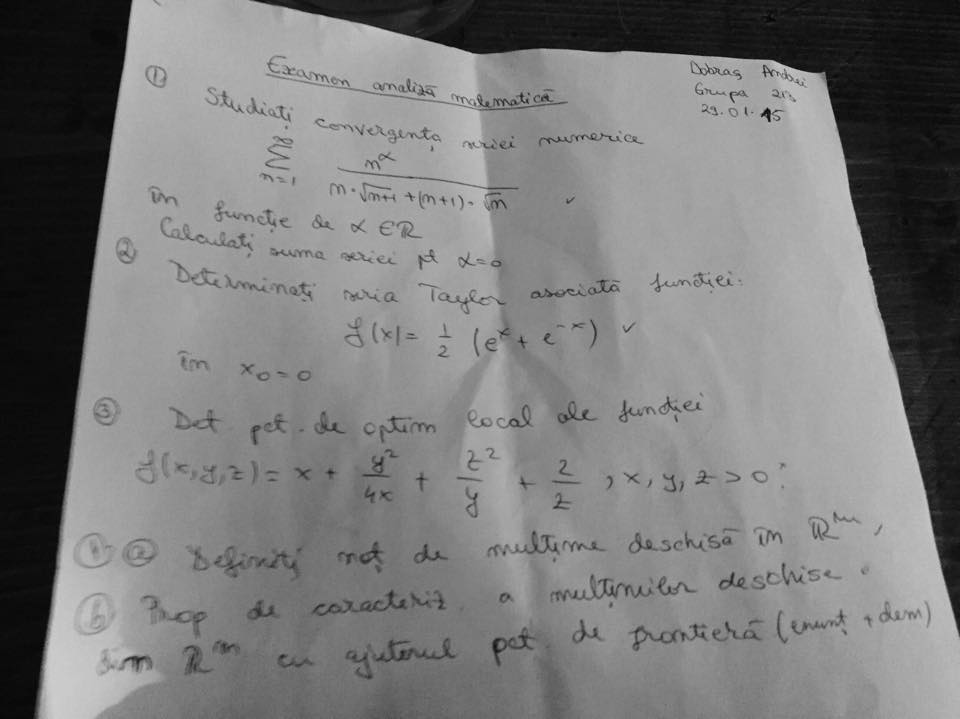 Examen analiză matematică
Dobraș Andrei
Grupa 213
29.01.15
① Studiați convergența seriei numerice
∞ Σ n=1 n^α / (n·√n+1 + (n+1)·√n) ✓
în funcție de α ∈ ℝ
Calculați suma seriei pt α=0
② Determinați seria Taylor asociată funcției:
f(x)= 1/2 (e^x + e^-x) ✓
în x₀=0
③ Det pct. de optim local ale funcției
f(x,y,z) = x + y²/4x + z²/y + 2/z , x, y, z > 0
a Definiți noț de mulțime deschisă în ℝ^m,
b Prop de caracteriz. a mulțimilor deschise
din ℝ^m cu ajutorul pct. de frontieră (enunț + dem)